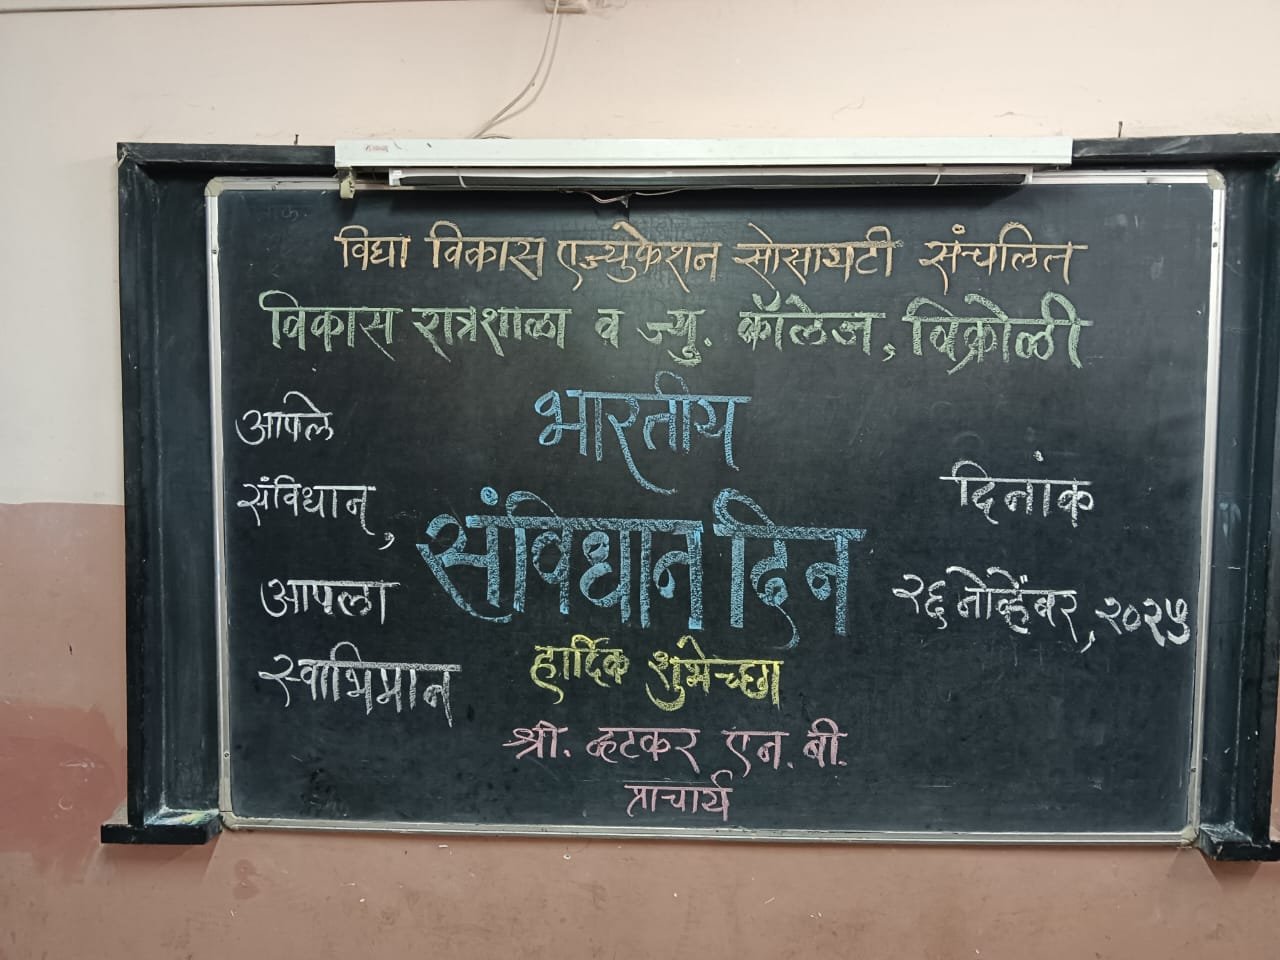 विद्या विकास एज्युकेशन सोसायटी संचलित
विकास रात्रशाळा व ज्यु. कॉलेज, विक्रोळी
भारतीय
संविधान दिन
आपले
संविधान,
आपला
स्वाभिमान
दिनांक
२६ नोव्हेंबर, २०२५
हार्दिक शुभेच्छा
श्री. व्हटकर एन. बी.
प्राचार्य